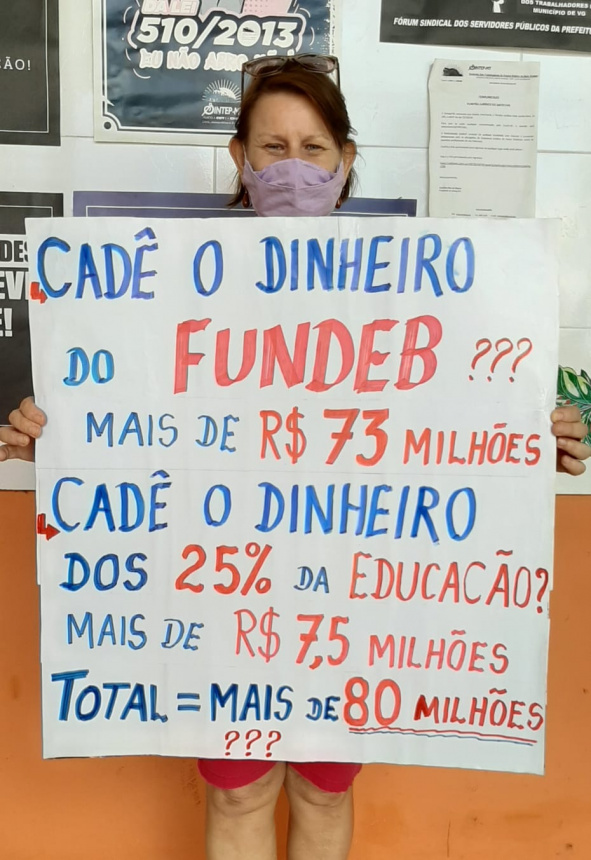 DA LEI
510/2013
EU NÃO ABRO MÃO
SINTEP-MT
DOS TRABALHADORES
MUNICÍPIO DE VG
FÓRUM SINDICAL DOS SERVIDORES PÚBLICOS DA PREFEIT
ÇÃO!
DES
EV
E!
CADÊ O DINHEIRO
DO FUNDEB ???
MAIS DE R$ 73 MILHÕES
CADÊ O DINHEIRO
DOS 25% DA EDUCACÃO?
MAIS DE R$ 7,5 MILHÕES
TOTAL = MAIS DE 80 MILHÕES
???